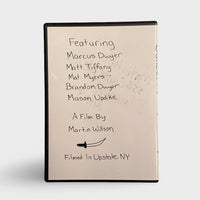 Featuring
Marcus Dwyer
Matt Tiffany
Mat Myers
Brandon Dwyer
Mason Updike
A Film By
Martin Willson
Filmed In Upstate NY